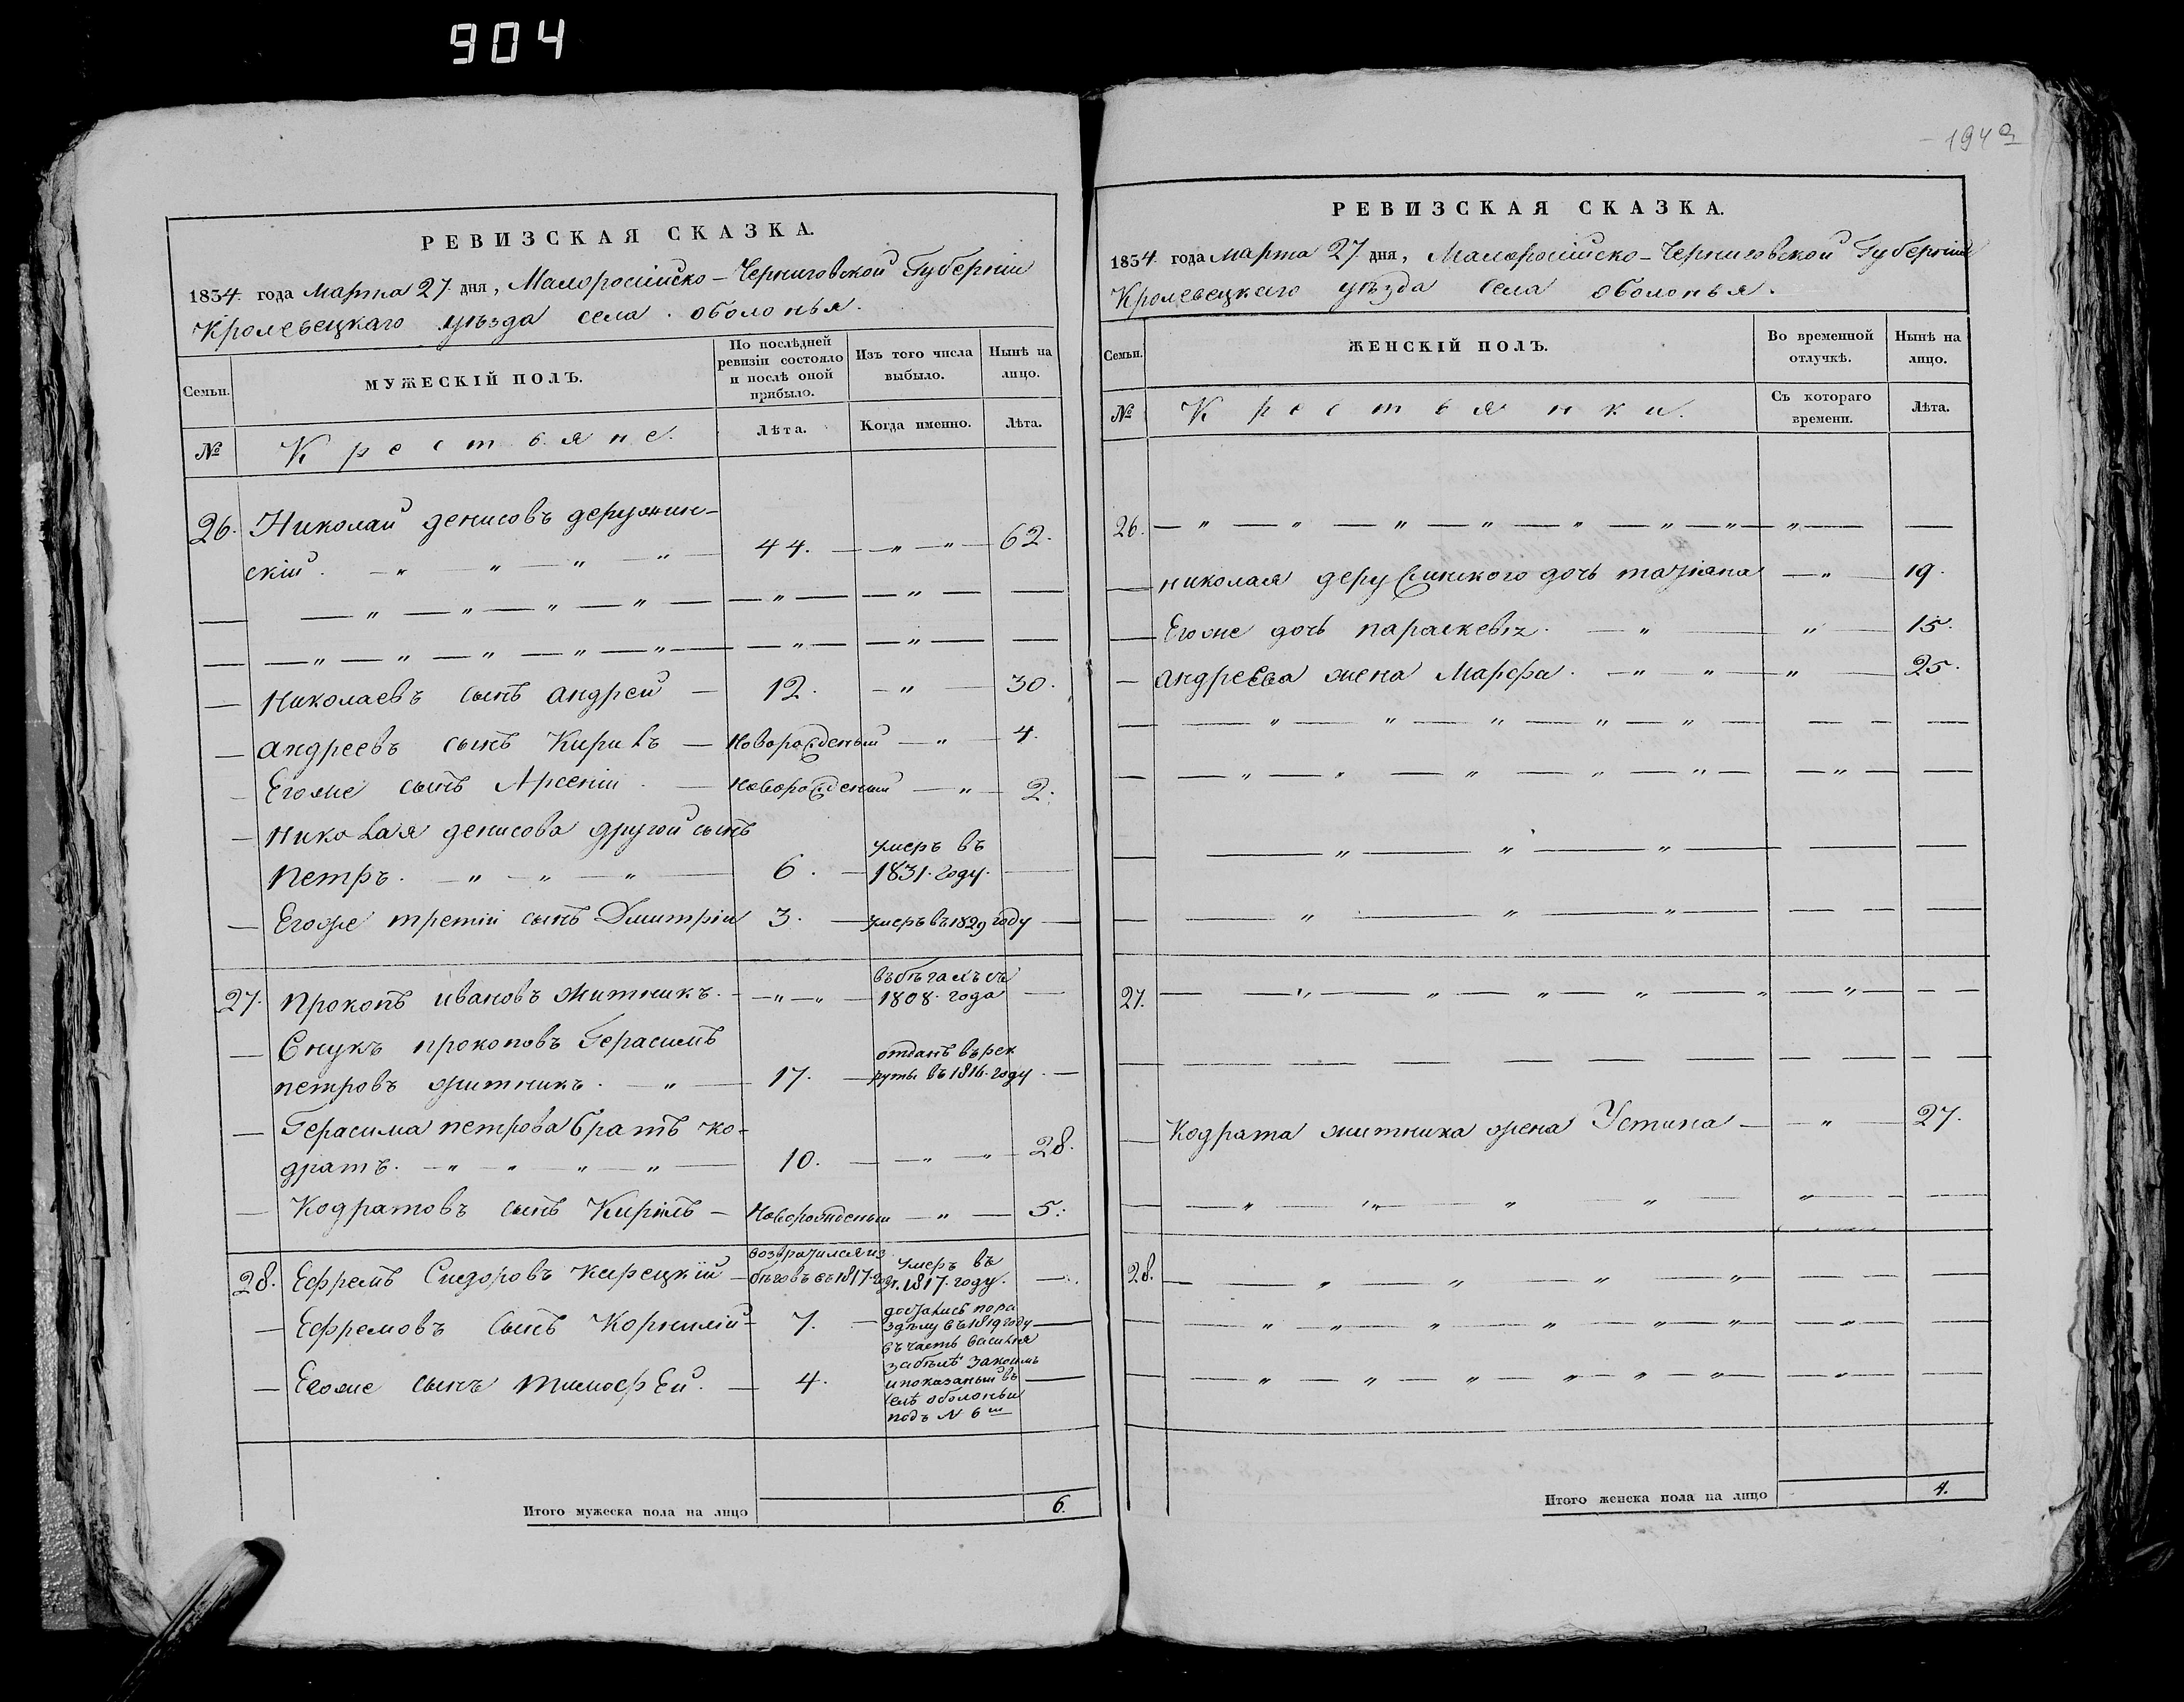 904
РЕВИЗСКАЯ СКАЗКА.
1834. года Марта 27. дня, Малоросийско-Черниговской Губернии
Кролевецкаго уѣзда села оболонья.
Семьи.
МУЖЕСКІЙ ПОЛЪ.
По послѣдней ревизіи состояло и послѣ оной прибыло.
Изъ того числа выбыло.
Нынѣ на лицо.
№
Крестьяне.
Лѣта.
Когда именно.
Лѣта.
26. Николай денисовъ держин-
скій. — " — " — " — " — 44. — " — " — 62.
— " — " — " — " — " — " —
— " — " — " — " — " — " — " —
— Николаевъ сынъ андрей — 12. — " — 30.
— андреевъ сынъ Кирилъ — Новорожденый — " — 4.
— Егоже сынъ Арсений — Новорожденый — " — 2.
— Николая денисова другой сынъ
Петръ. — " — " — " — 6. — умеръ въ
1831. году. —
— Егоже третий сынъ Дмитрій 3. — умеръ въ 1829 году —
27. Прокопъ ивановъ житникъ. — " — " — въ бѣгахъ съ
1808. года —
— Внукъ прокоповъ Герасимъ
петровъ житникъ. — " — 17. — отданъ въ рек
руты въ 1816. году. —
— Герасима петрова братъ ко-
дратъ. — " — " — " — " — 10. — " — " — 28.
— Кодратовъ сынъ Кирилъ — Новорожденый — " — 5.
28. Ефремъ Сидоровъ Кирецкій — возвратился из
бѣговъ въ 1817. году. умеръ въ
1817. году. —
— Ефремовъ сынъ Корнилій — 7. — достались по ра
здѣлу въ 1819 году —
— Егоже сынъ тимофей. — 4. въ часть василия
забѣлѣ за коимъ
и показаный въ
селѣ оболоньи
подъ N 6 м —
Итого мужеска пола на лицо 6.
194
РЕВИЗСКАЯ СКАЗКА.
1834. года Марта 27. дня, Малоросийско-Черниговской Губернии
Кролевецкаго уѣзда села оболонья.
Семьи.
ЖЕНСКІЙ ПОЛЪ.
Во временной отлучкѣ.
Нынѣ на лицо.
№
Крестьянки.
Съ котораго времени.
Лѣта.
26. — " — " — " — " — " — " — " — " — —
— николая держинского дочь татіана — " — 19.
— Егоже дочь параскевія. — " — " — 15.
— андреева жена Марфа. — " — " — " — 25.
— " — " — " — " — " — — —
— " — " — " — " — " — " — —
— " — " — " — — —
— " — " — " — — —
27. — " — " — " — " — " — " — — —
— — — — — — — —
— Кодрата житника жена Устина — " — 27.
— " — " — " — " — " — —
28. — " — " — " — " — — —
— " — " — " — " — " — " — " — —
— " — " — " — " — " — " — " — —
Итого женска пола на лицо 4.